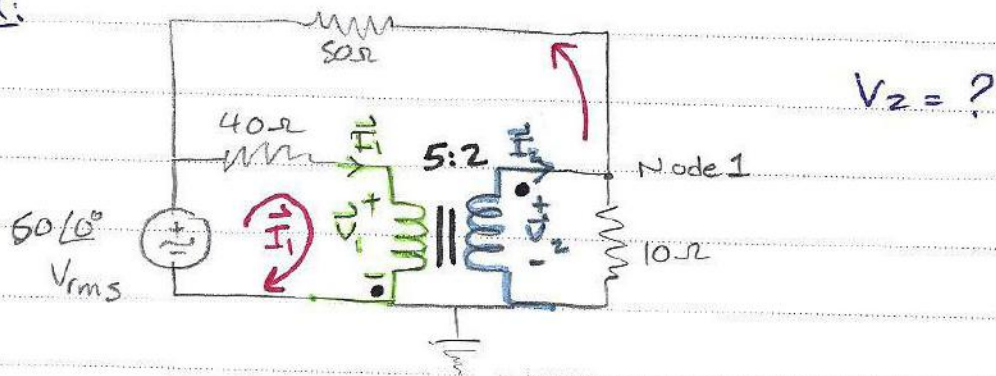 50Ω
V2 = ?
40Ω
I1
5:2
I2
Node 1
60∠0°
Vrms
I1
+
V1
-
+
V2
-
10Ω